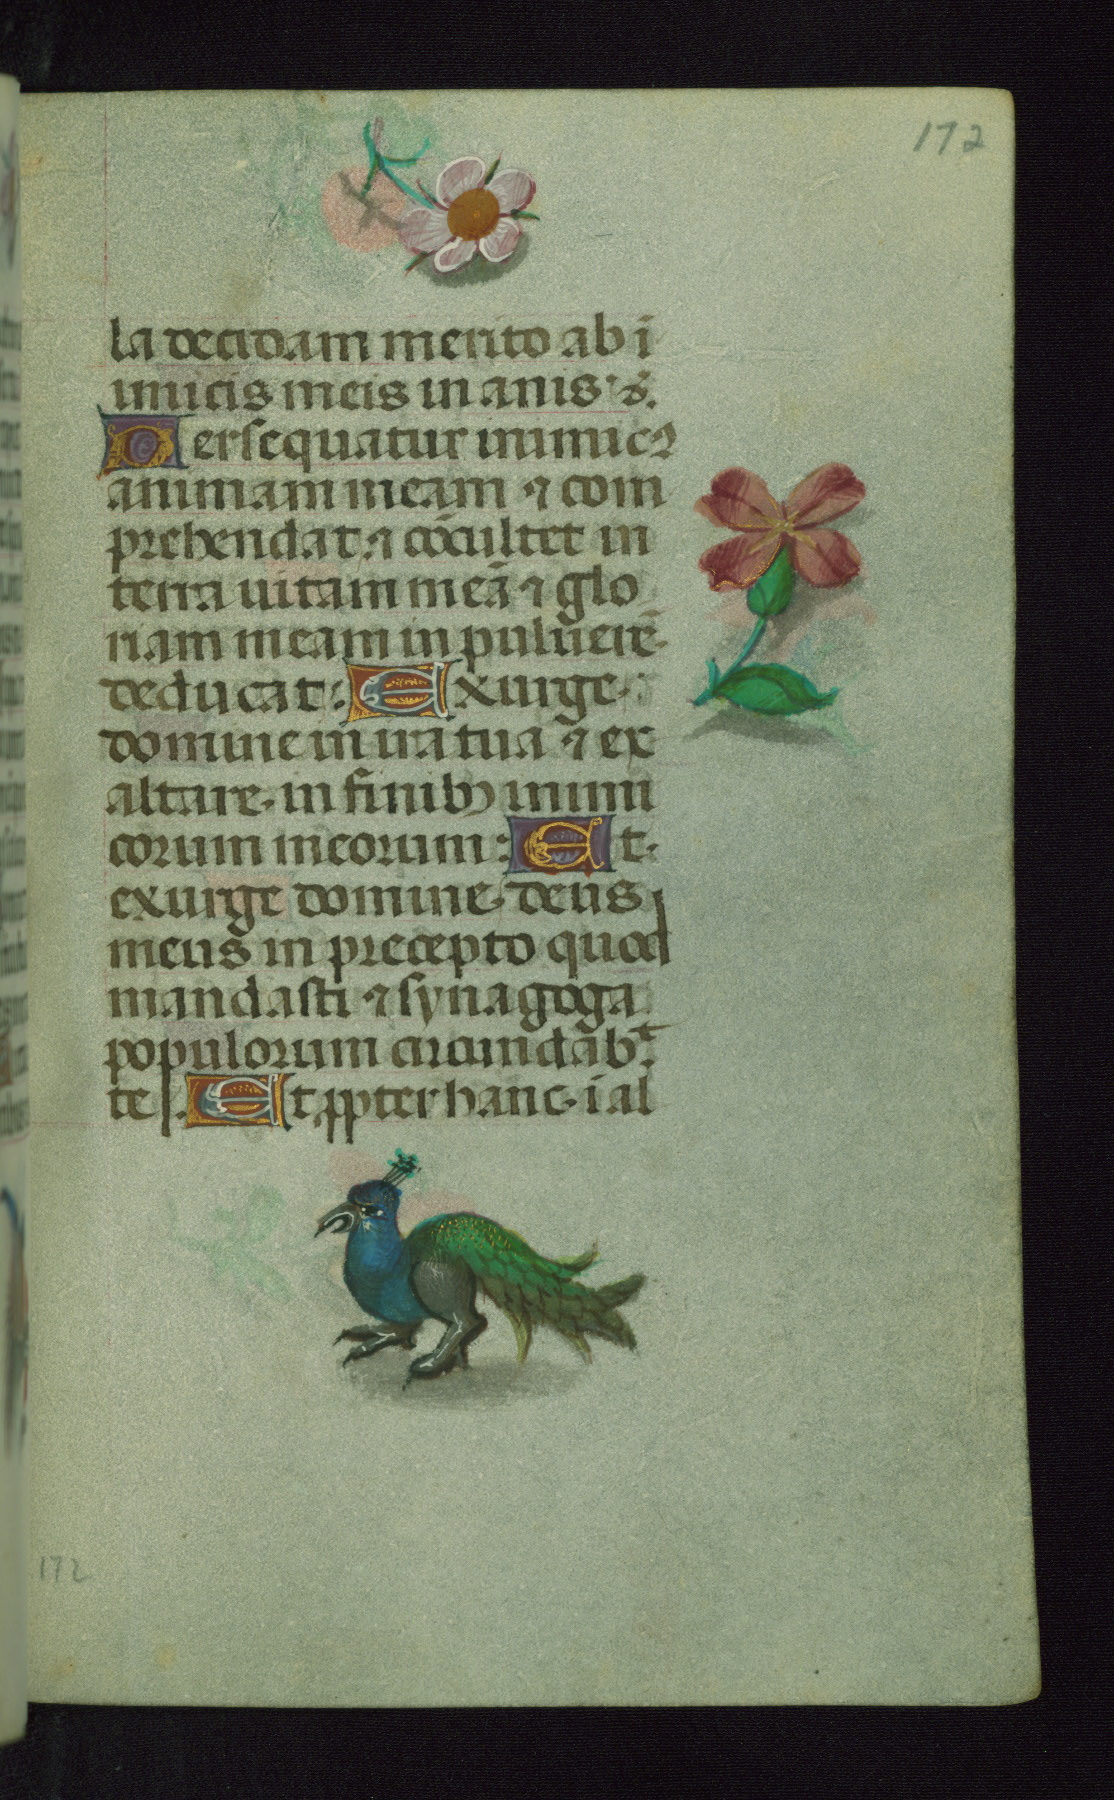 172
la decidam merito ab i
imicis meis inanis·s̄.
Persequatur inimicꝰ
animam meam ⁊ com
prehendat ⁊ cōculcet in
terra uitam meā ⁊ glo
riam meam in puluerē
deducat: Exurge
domine in ira tua ⁊ ex
altare· in finibꝫ inimi
corum meorum: Et
exurge domine deus
meus in precepto quod
mandasti ⁊ synagoga
populorum circundabᵗ
te. Et ꝓpter hanc i al
172